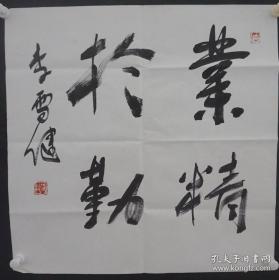 業精
於勤
李雪健
孔夫子旧书网